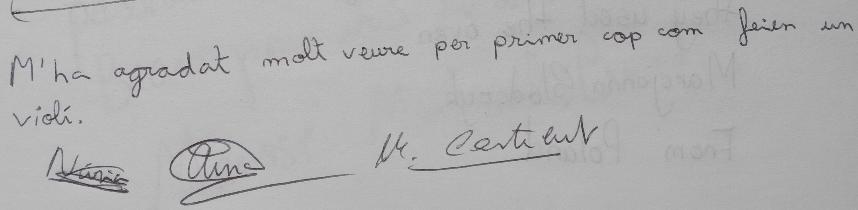 M'ha agradat molt veure per primer cop com feien un
violí.
Núria Aina M.